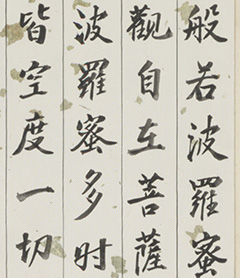 般若波羅蜜
觀自在菩薩
波羅蜜多时
皆空度一切